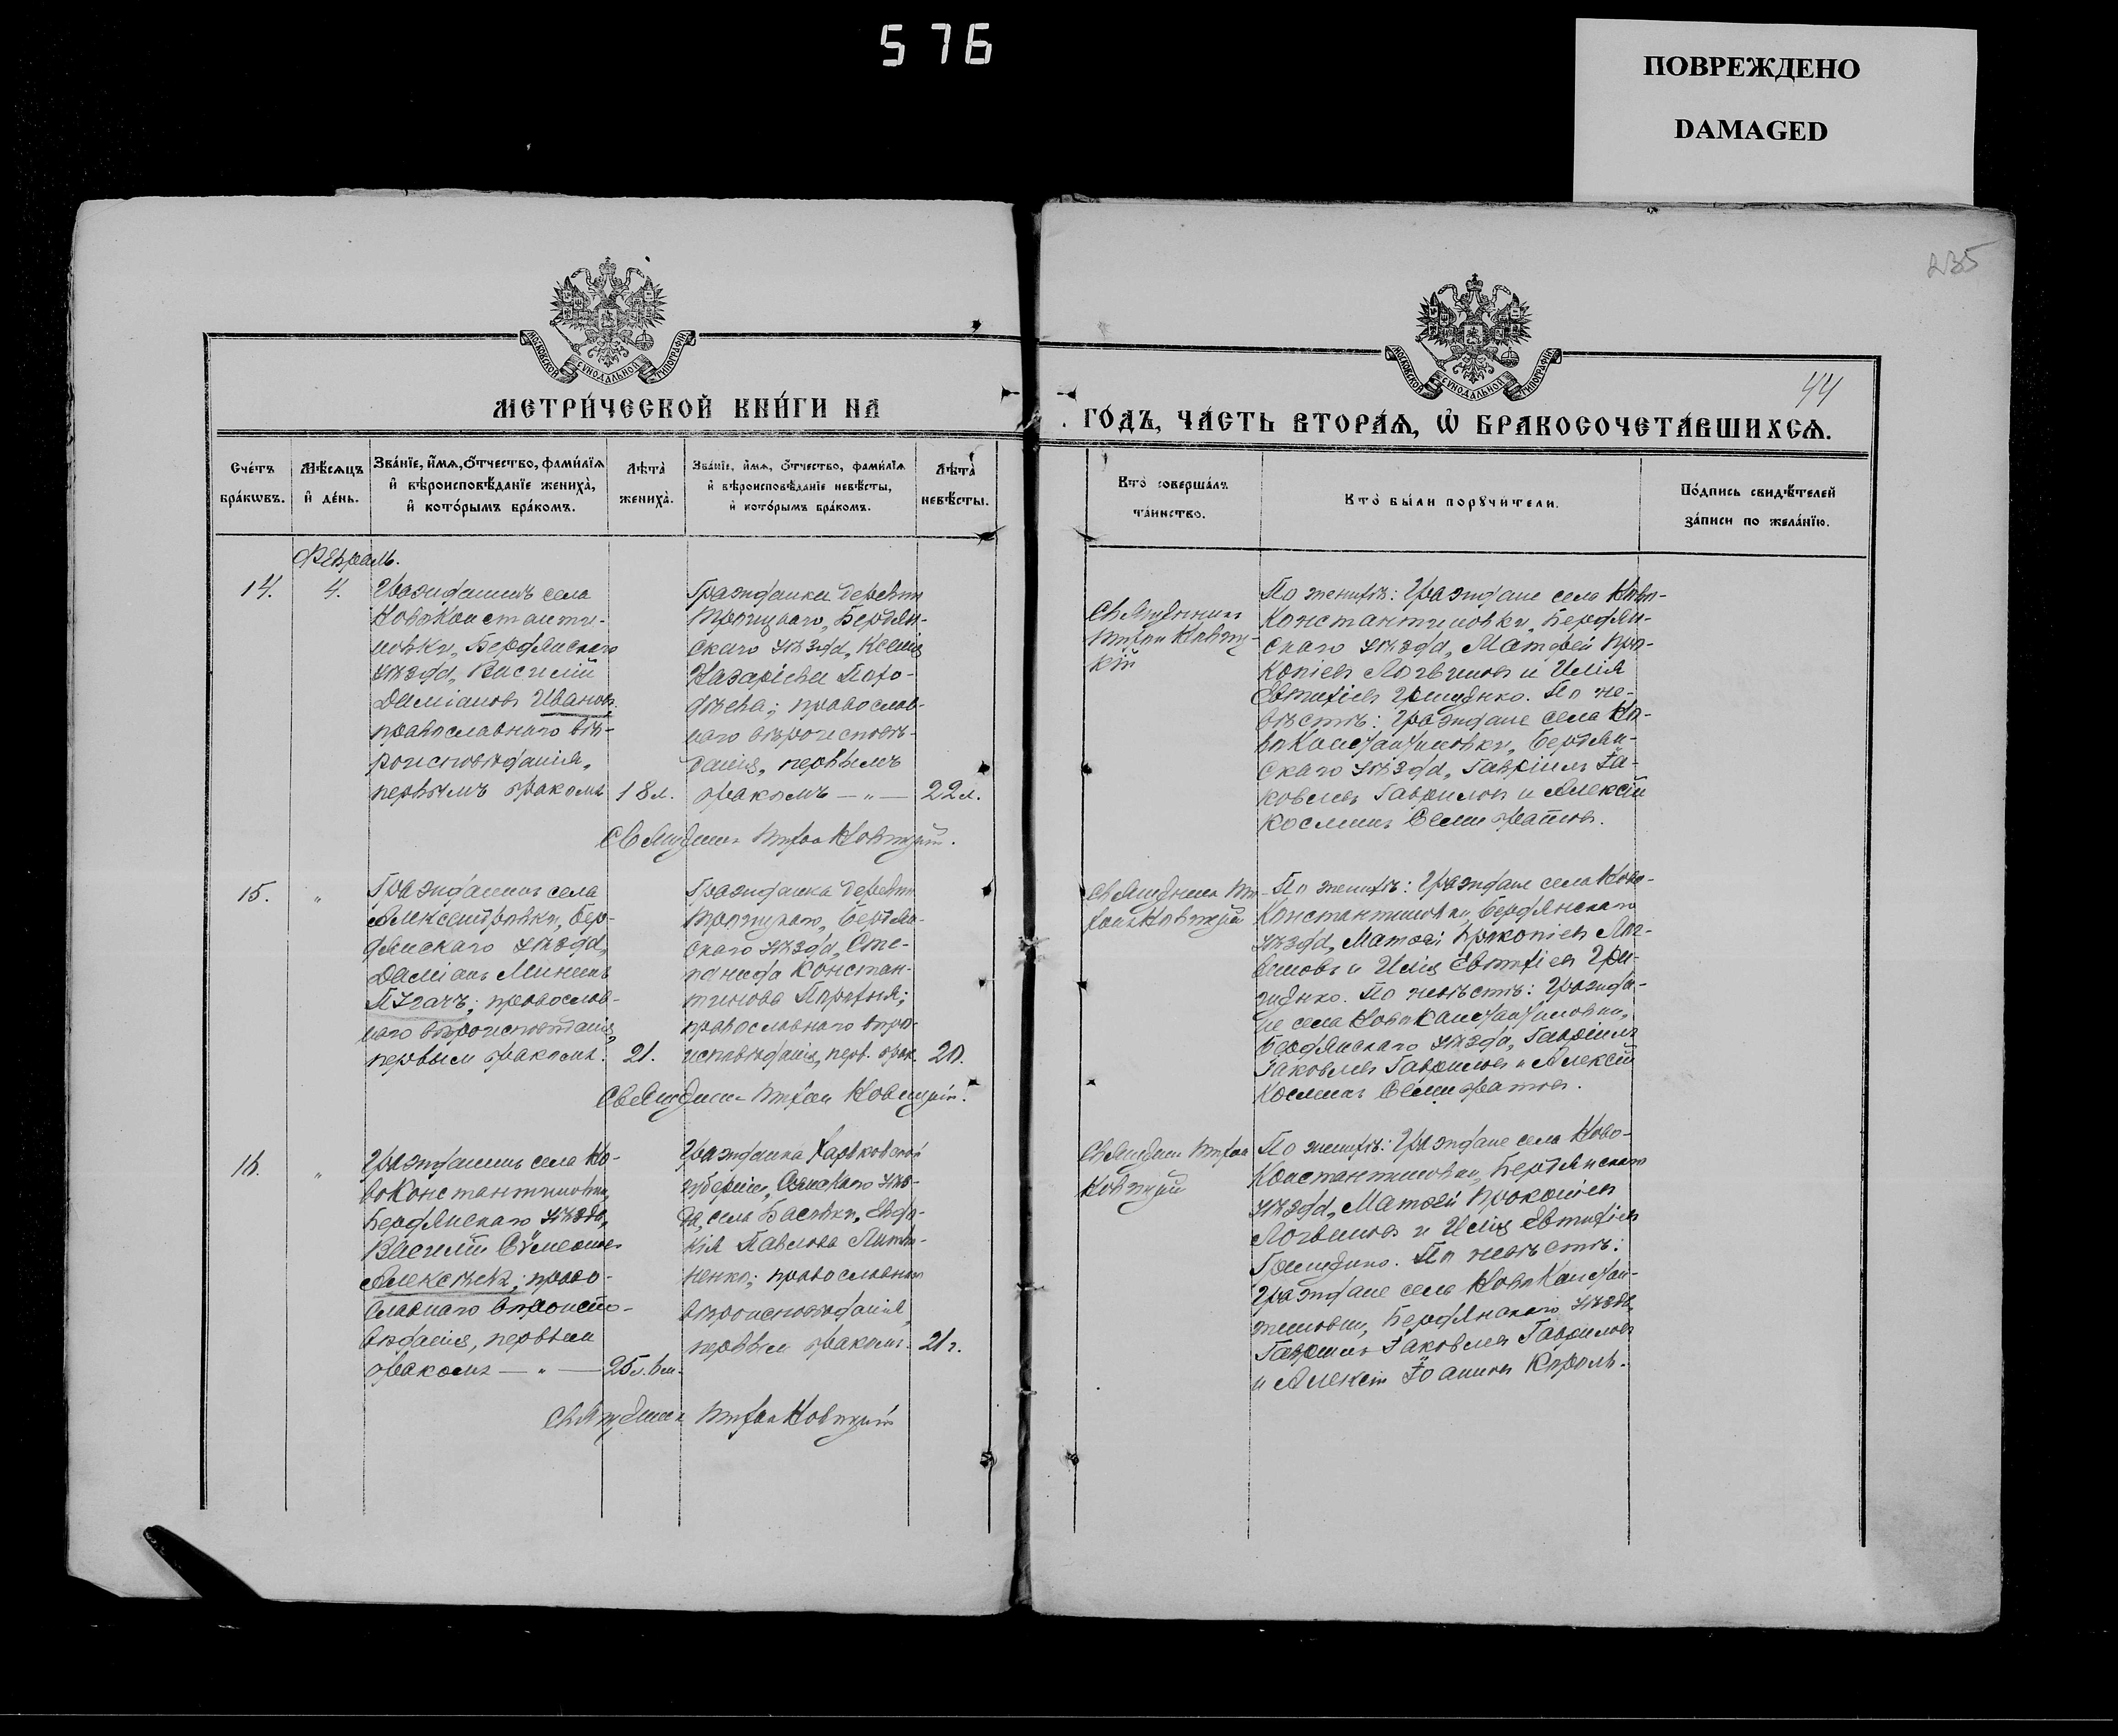 576
ПОВРЕЖДЕНО
DAMAGED
235
44
МОСКОВСКОЙ СУНОДАЛЬНОЙ ТИПОГРАФІИ
МОСКОВСКОЙ СУНОДАЛЬНОЙ ТИПОГРАФІИ
МЕТРИ́ЧЕСКОЙ КНИ́ГИ НА
ГО́ДЪ, ЧА́СТЬ ВТОРА́Ѧ, Ѽ БРАКОСОЧЕТА́ВШИХСѦ.
Сче́тъ
бра́кѡвъ.
Мѣ́сяцъ
и҆ де́нь.
Зва́нїе, и҆́мѧ, ѻ҆́тчество, фами́лїѧ
и҆ вѣроисповѣ́данїе жениха̀,
и҆ кото́рымъ бра́комъ.
Лѣта̀
жениха̀.
Зва́нїе, и҆́мѧ, ѻ҆́тчество, фами́лїѧ
и҆ вѣроисповѣ́данїе невѣ́сты,
и҆ кото́рымъ бра́комъ.
Лѣта̀
невѣ́сты.
Кто̀ соверша́лъ
та́инство.
Кто̀ бы́ли порꙋчи́тели.
По́дпись свидѣ́телей
за́писи по жела́нїю.
Февраль.
14.
4.
Гражданинъ села
Новоконстанти-
новки, Бердянскаго
уѣзда, Василій
Даміановъ Ивановъ,
православнаго вѣ-
роисповѣданія,
первымъ бракомъ
18 л.
Гражданка деревни
Троицкаго, Бердян-
скаго уѣзда, Ксенія
Назаріева
православ-
наго вѣроисповѣ-
данія, первымъ
бракомъ — „ —
22 л.
Священникъ Новицкій.
Священникъ
Новиц-
кій
По женихѣ: Граждане села Ново-
константиновки, Бердян-
скаго уѣзда, Матфей Про-
копіевъ Логвиновъ и Илія
Евтихіевъ Гриценко. По не-
вѣстѣ: Граждане села Но-
воконстантиновки, Бердян-
скаго уѣзда, Гавріилъ Іа-
ковлевъ Гавриловъ и Алексій
Косминъ Семибратовъ.
15.
„
Гражданинъ села
Александровки, Бер-
дянскаго уѣзда,
Даміанъ Мининъ
Пугачъ; православ-
наго вѣроисповѣданія,
первымъ бракомъ.
21.
Гражданка деревни
Троицкаго, Бердян-
скаго уѣзда, Сте-
панида Констан-
тинова
православнаго вѣро-
исповѣданія, перв. брак.
20.
Священникъ Новицкій.
Священникъ
Новицкій
По женихѣ: Граждане села Ново-
константиновки, Бердянскаго
уѣзда, Матфей Прокопіевъ Лог-
виновъ и Илія Евтихіевъ Гри-
ценко. По невѣстѣ: Гражда-
не села Новоконстантиновки,
Бердянскаго уѣзда, Гавріилъ
Іаковлевъ Гавриловъ и Алексій
Косминъ Семибратовъ.
16.
„
Гражданинъ села Но-
воконстантиновки,
Бердянскаго уѣзда,
Василій Сумеоновъ
Алексѣевъ; право-
славнаго вѣроиспо-
вѣданія, первымъ
бракомъ — „ —
25 л. 6 м.
Гражданка Харьковской
губерніи, Сумскаго уѣз-
да, села Басовки, Евдо-
кія Павлова Литви-
ненко; православнаго
вѣроисповѣданія,
первымъ бракомъ.
21 г.
Священникъ Новицкій
Священникъ
Новицкій
По женихѣ: Граждане села Ново-
константиновки, Бердянскаго
уѣзда, Матфей Прокопіевъ
Логвиновъ и Илія Евтихіевъ
Гриценко. По невѣстѣ:
Граждане села Новоконстан-
тиновки, Бердянскаго уѣзда,
Гавріилъ Іаковлевъ Гавриловъ
и Алексій Іоанновъ Король.